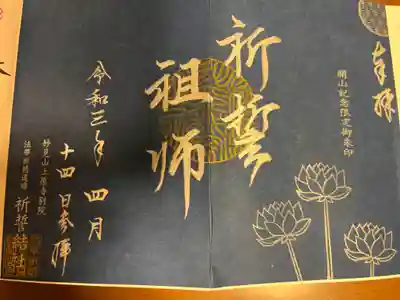 奉拝
開山記念限定御朱印
祈誓
祖师
令和三年四月
十四日参拝
妙見山上原寺別院
祈誓結社